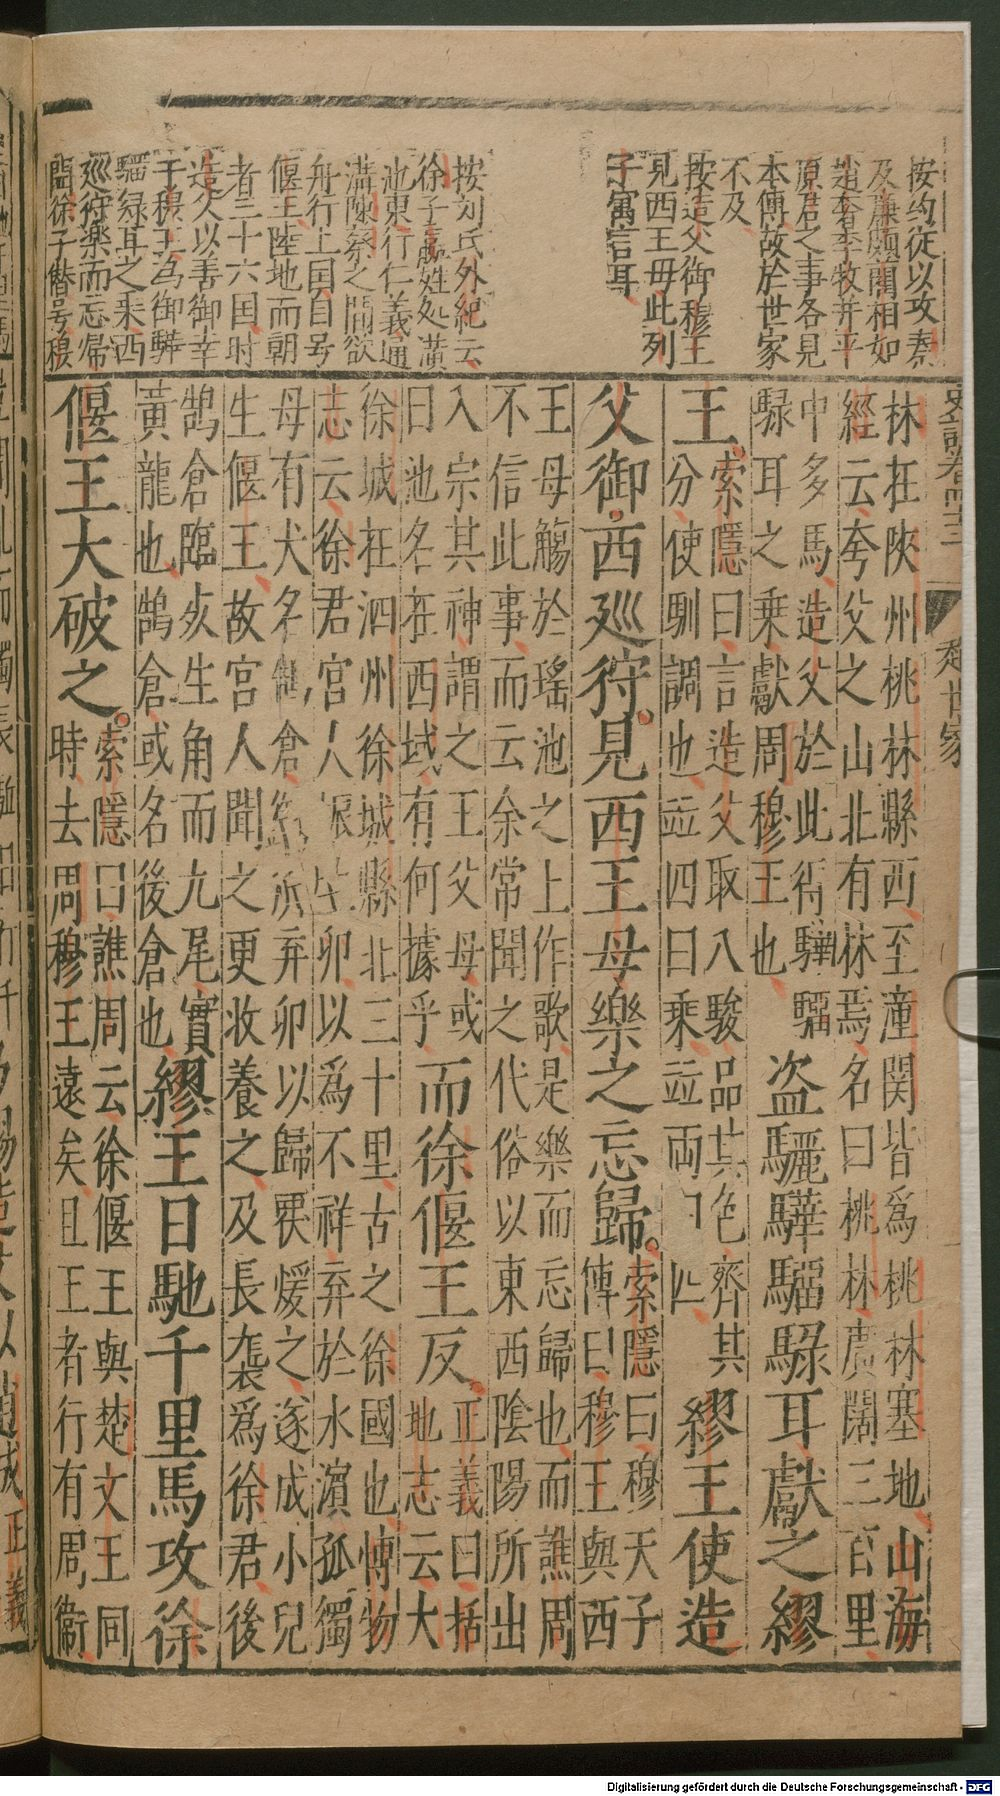 按約從以攻秦
及廉頗藺相如
趙奢李牧并平
原君之事各見
本傳故於世家
不及
按造父御穆王
見西王母此列
子寓言耳
按刘氏外紀云
徐子嬴姓処潢
池東行仁義通
溝陳蔡之間欲
舟行上国自号
偃王陸地而朝
者三十六国时
造父以善御幸
于穆王為御驊
騮緑耳之乗西
廵狩樂而忘帰
聞徐子僣号穆
趙世家
林在陝州桃林縣西至潼関皆爲桃林塞地山海
經云夸父之山北有林焉名曰桃林廣闊三百里
中多馬造父於此得驊騮
騄耳之乗獻周穆王也
盗驪驊騮騄耳獻之繆
王
索隱曰言造父取八駿品其色齊其
分使馴調也並四曰乗並両曰匹
繆王使造
父御西廵狩見西王母樂之忘歸
索隱曰穆天子
傳曰穆王與西
王母觴於瑤池之上作歌是樂而忘歸也而譙周
不信此事而云余常聞之代俗以東西陰陽所出
入宗其神謂之王父母或
曰池名在西域有何據乎
而徐偃王反
正義曰括
地志云大
徐城在泗州徐城縣北三十里古之徐國也博物
志云徐君宮人娠生卵以爲不祥弃於水濵孤獨
母有犬名鵠倉所弃卵以歸覆煖之遂成小兒
生偃王故宮人聞之更收養之及長襲爲徐君後
鵠倉臨死生角而九尾實
黃龍也鵠倉或名後倉也
繆王日馳千里馬攻徐
偃王大破之
索隱曰譙周云徐偃王與楚文王同
時去周穆王遠矣且王者行有周衞
Digitalisierung gefördert durch die Deutsche Forschungsgemeinschaft - DFG